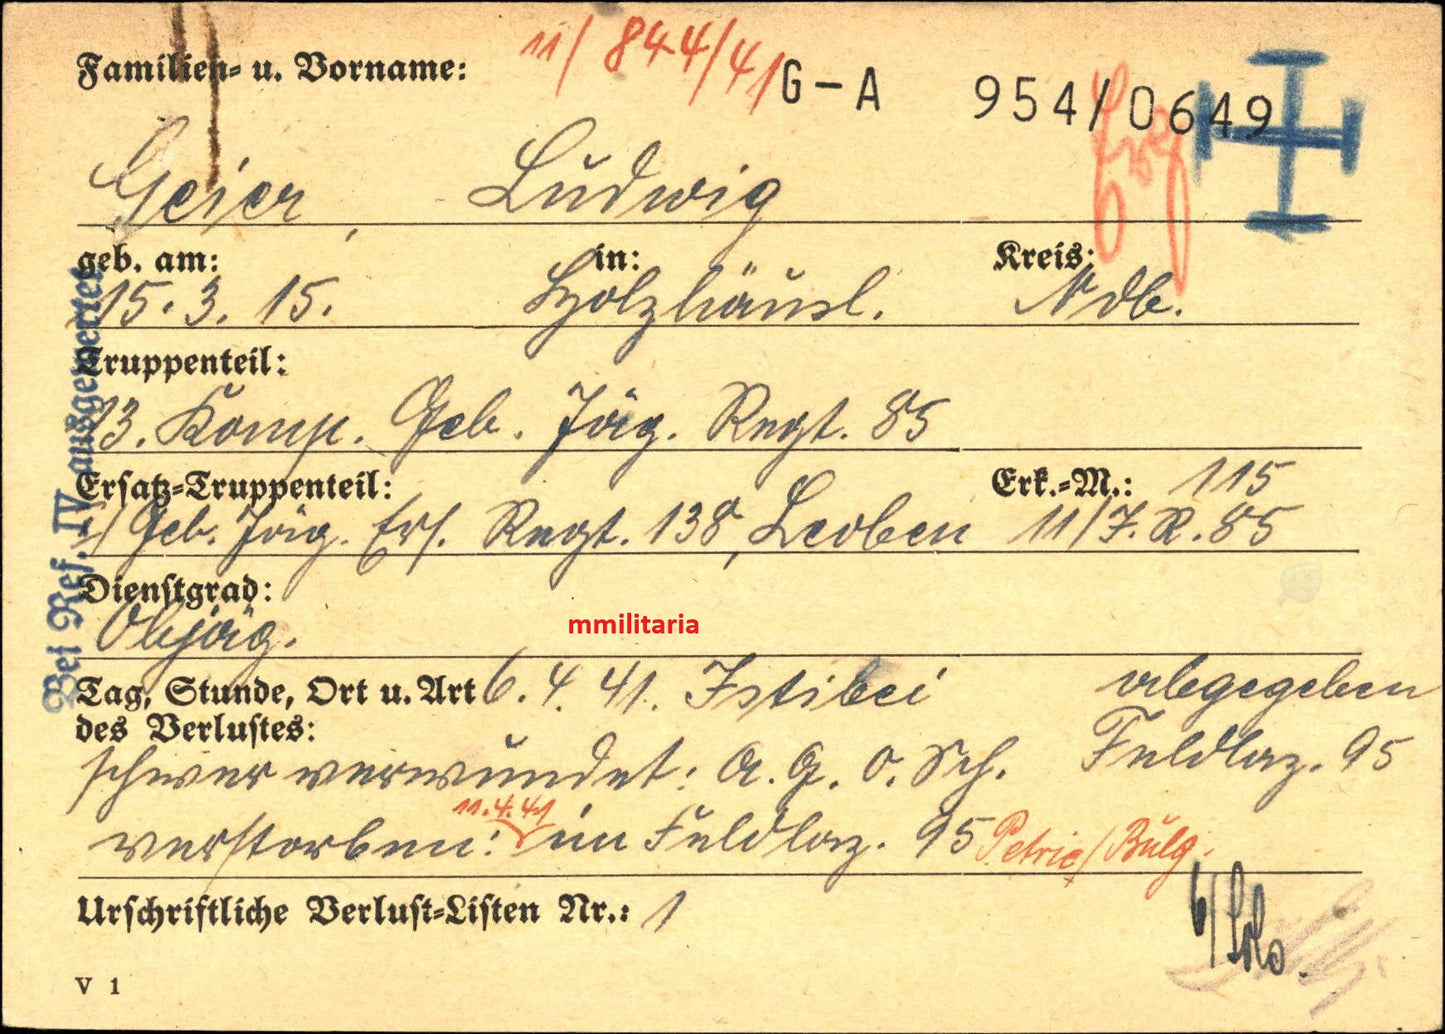 11/844/41
G-A 954/0649
Familien- u. Vorname:
Geier, Ludwig
geb. am: in: Kreis:
15. 3. 15. Holzhäusl. Ndb.
Truppenteil:
13. Komp. Geb. Jäg. Regt. 85
Ersatz-Truppenteil: Erk.-M.: 115
Geb. Jäg. Ers. Regt. 138, Leoben 11/J.R.85
Dienstgrad:
Objäg.
mmilitaria
Tag, Stunde, Ort u. Art 6. 4. 41. Istibei abgegeben
des Verlustes:
schwer verwundet: A. G. O. Sch. Feldlaz. 95
11.4.41
verstorben: im Feldlaz. 95 Petric/Bulg.
Urschriftliche Verlust-Listen Nr.: 1
V 1
Bei Ref. IV ausgewertet